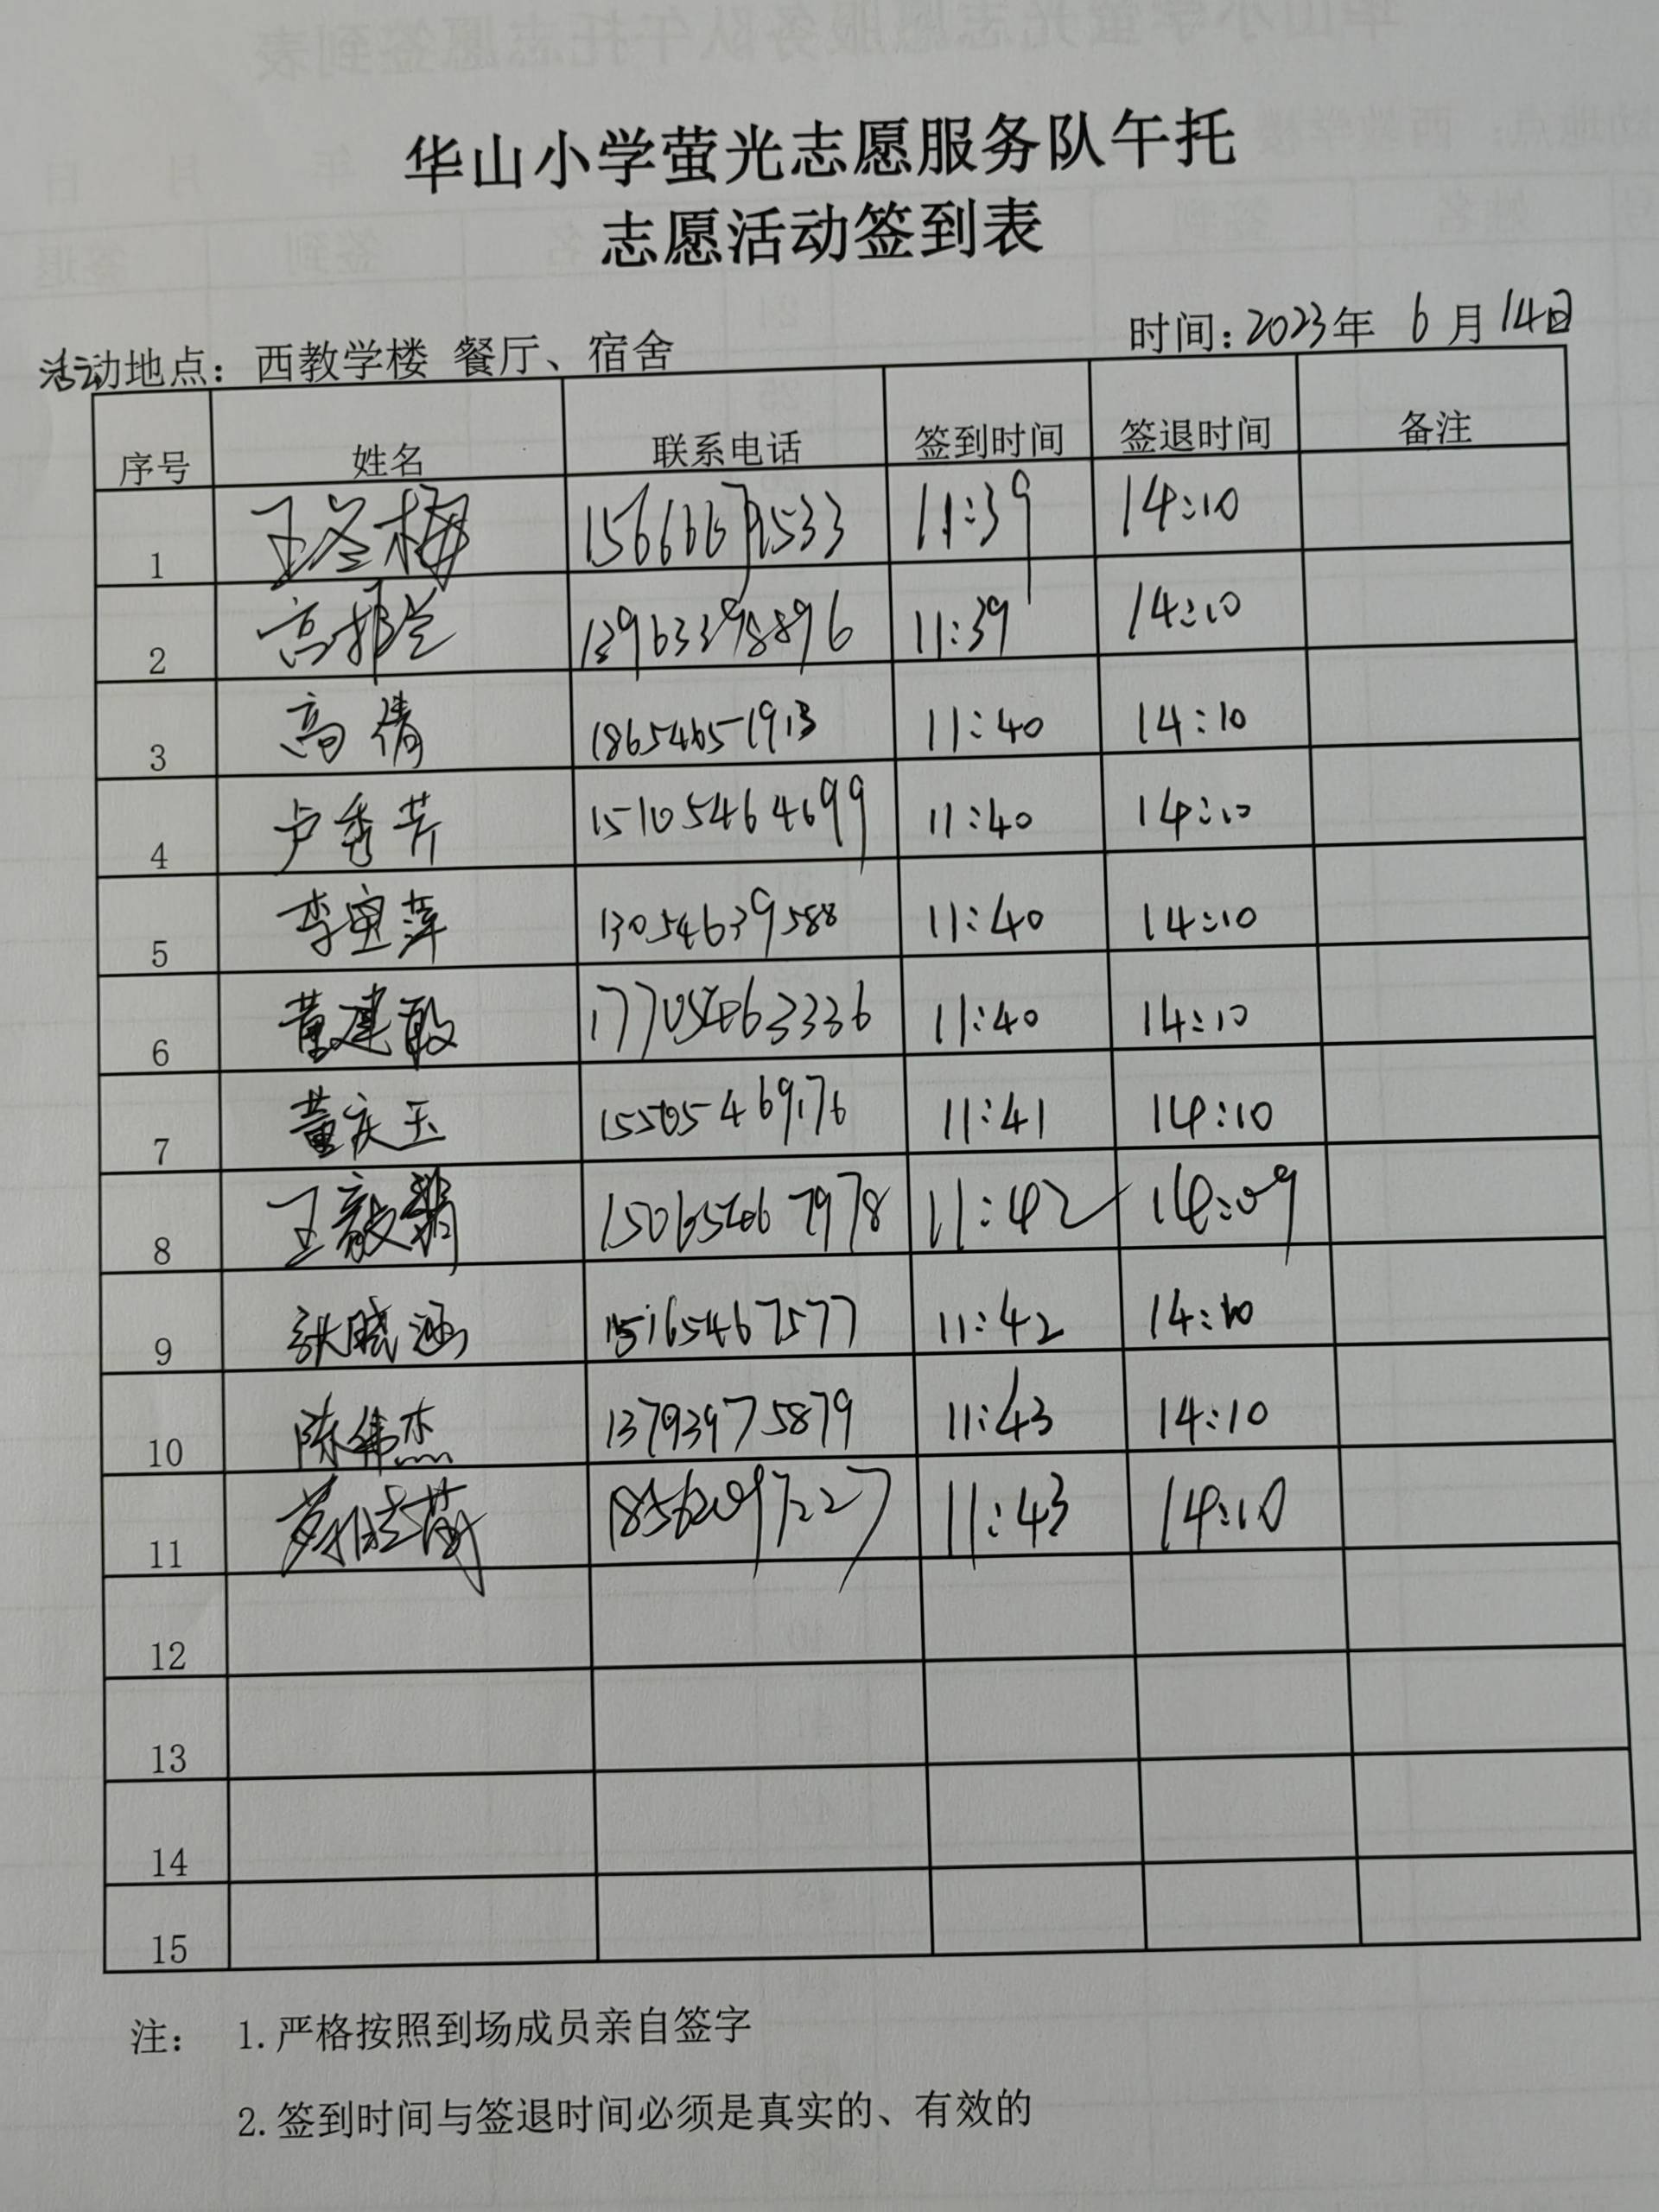 华山小学萤光志愿服务队午托
志愿活动签到表
活动地点：西教学楼 餐厅、宿舍 时间：2023年 6月14日
序号 姓名 联系电话 签到时间 签退时间 备注
1 王冬梅 15666671533 11:39 14:10
2 13963398896 11:39 14:10
3 高倩 18654651913 11:40 14:10
4 卢秀芹 15105464699 11:40 14:10
5 李 萍 13054639588 11:40 14:10
6 董建敏 17705463336 11:40 14:10
7 董庆玉 15505469176 11:41 14:10
8 王 15065467978 11:42 14:09
9 张晓涵 15165467577 11:42 14:10
10 陈伟杰 13793975879 11:43 14:10
11 18562097227 11:43 14:10
12
13
14
15
注： 1.严格按照到场成员亲自签字
2.签到时间与签退时间必须是真实的、有效的